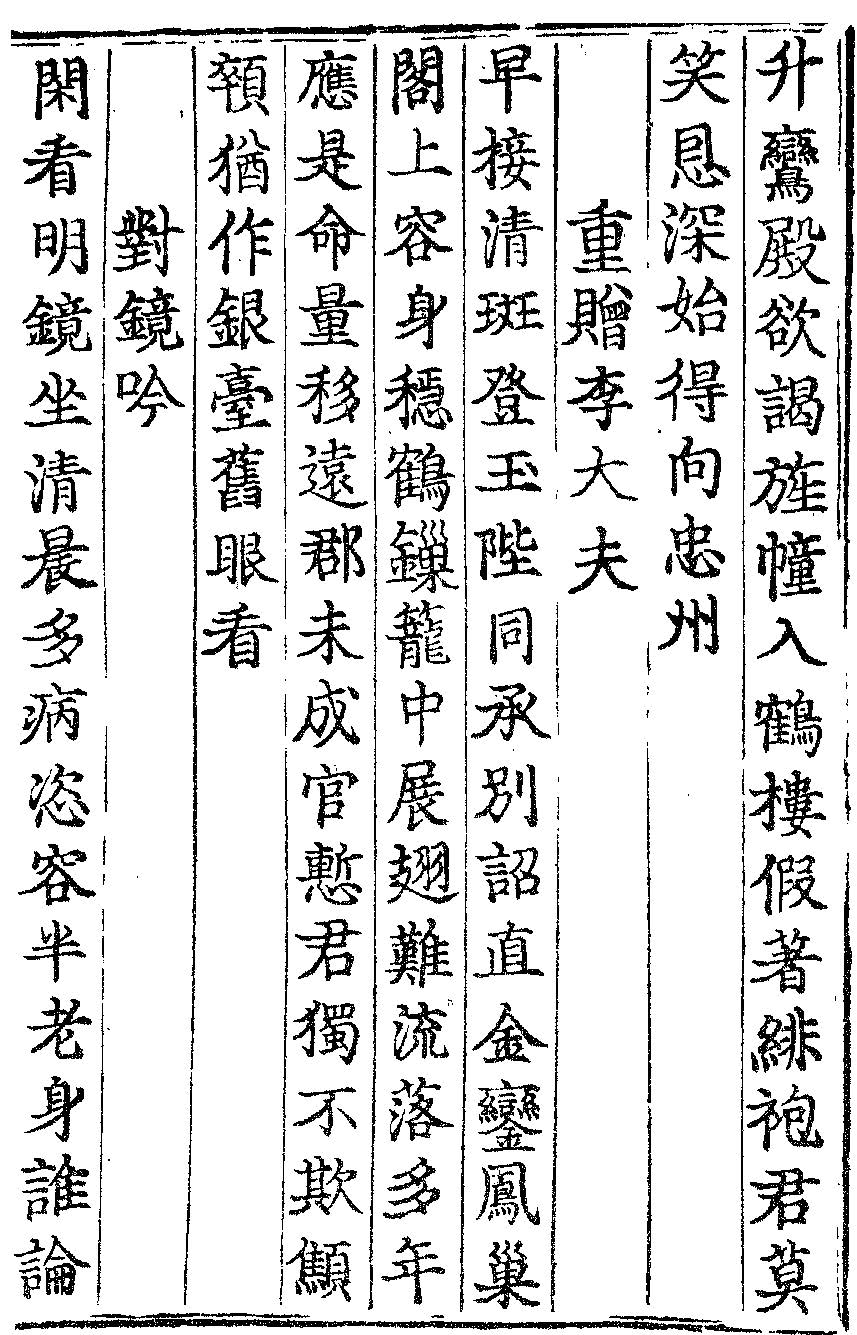 升鸞殿欲謁旌幢入鶴樓假著緋袍君莫
笑恩深始得向忠州
重贈李大夫
早接清班登玉陛同承別詔直金鑾鳳巢
閣上容身穩鶴鏁籠中展翅難流落多年
應是命量移遠郡未成官慙君獨不欺顦
顇猶作銀臺舊眼看
對鏡吟
閑看明鏡坐清晨多病恣容半老身誰論